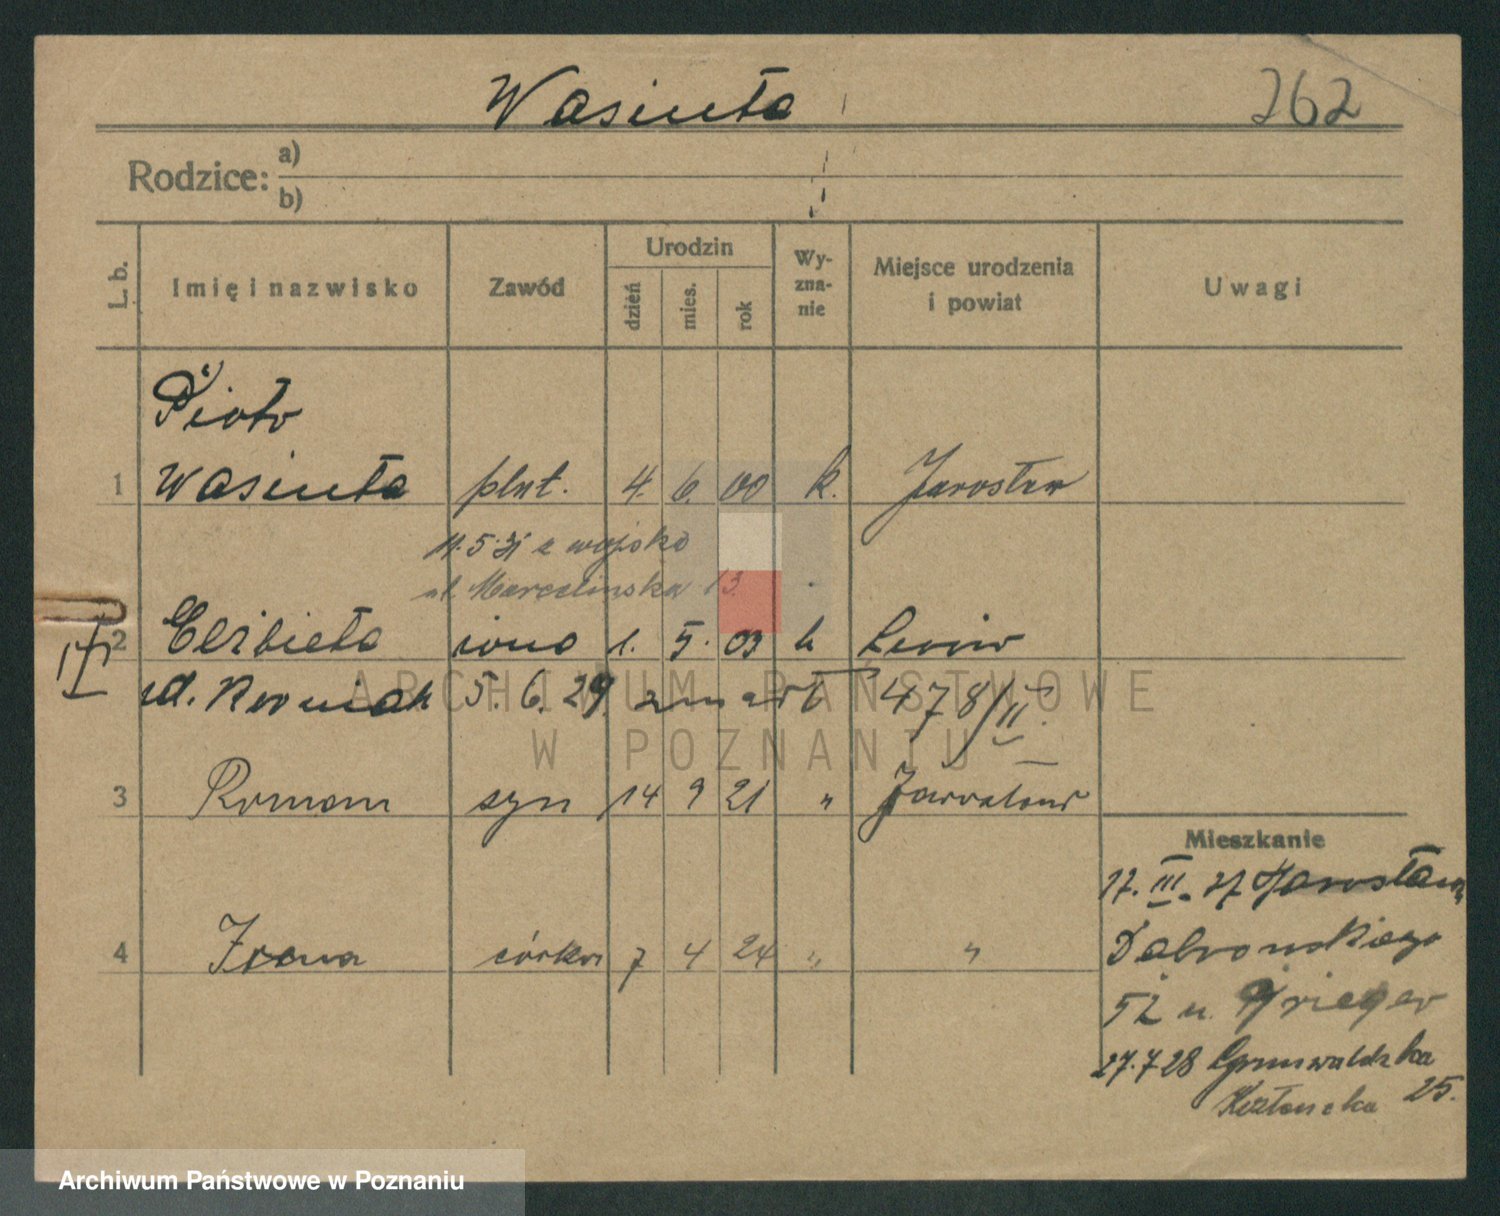 Wasiuta 262
Rodzice: a)
b)
L. b. Imię i nazwisko Zawód Urodzin dzień mies. rok Wy-zna-nie Miejsce urodzenia i powiat Uwagi
Piotr
1 Wasiuta plut. 4. 6. 00 k. Jarosław
11.5.31 z wojsko
ul. Marcelinska 13.
2 Elżbieta żona 1. 5. 03 k Lwów
5. 6. 29. zmarł 478/II.
3 Roman syn 14 9 21 " Jarosław
Mieszkanie
17. III. 27 Jarosław
4 Irena córka 7 4 24 " "
Dabrowskiego
52 u. Krieger
27.7 28 Grunwaldzka
25.
ARCHIWUM PAŃSTWOWE
W POZNANIU
Archiwum Państwowe w Poznaniu